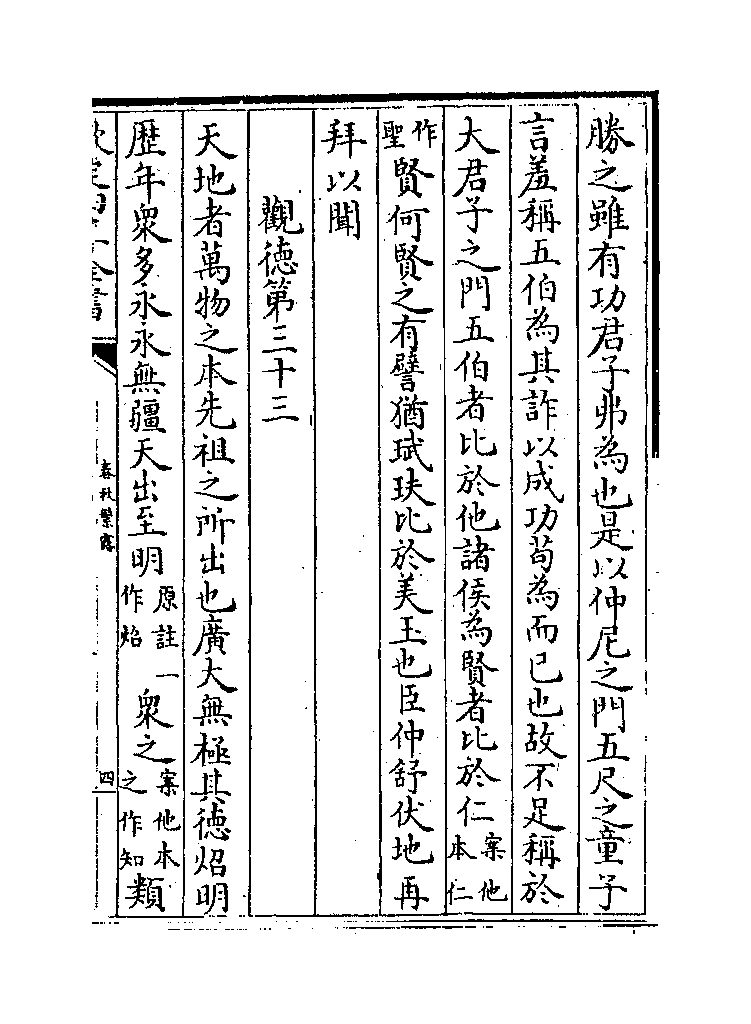 勝之雖有功君子弗為也是以仲尼之門五尺之童子
言羞稱五伯為其詐以成功苟為而已也故不足稱於
大君子之門五伯者比於他諸侯為賢者比於仁案他本仁
作聖賢何賢之有譬猶珷玞比於美玉也臣仲舒伏地再
拜以聞
觀德第三十三
天地者萬物之本先祖之所出也廣大無極其德炤明
歷年衆多永永無疆天出至明原註一作炤衆之案他本之作知類
欽定四庫全書
春秋繁露
四